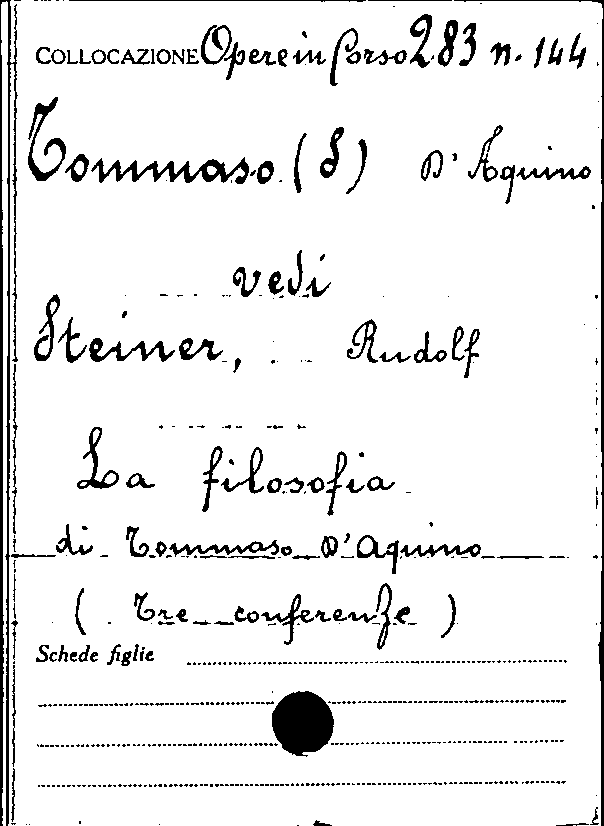 COLLOCAZIONE Opere in Corso 283 n. 144
Tommaso (S) D'Aquino
vedi
Steiner, Rudolf
La filosofia
di Tommaso D'Aquino
( Tre conferenze )
Schede figlie